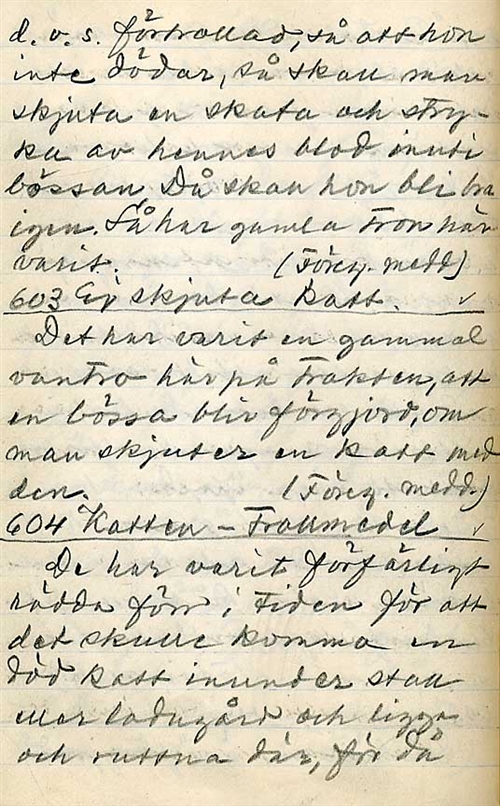 d. v. s. förtrollad, så att hon
inte dödar, så skall man
skjuta en skata och stry-
ka av hennes blod inuti
bössan. Då skall hon bli bra
igen. Så har gamla tron här
varit. (Föreg. medd)
603 Ej skjuta katt. ✓
Det har varit en gammal
vantro här på trakten, att
en bössa blir förgjord, om
man skjuter en katt med
den. (Föreg. medd.)
604 Katten - Trollmedel ✓
De har varit förfärligt
rädda förr i tiden för att
det skulle komma en
död katt inunder stall
eller ladugård och ligga
och ruttna där, för då